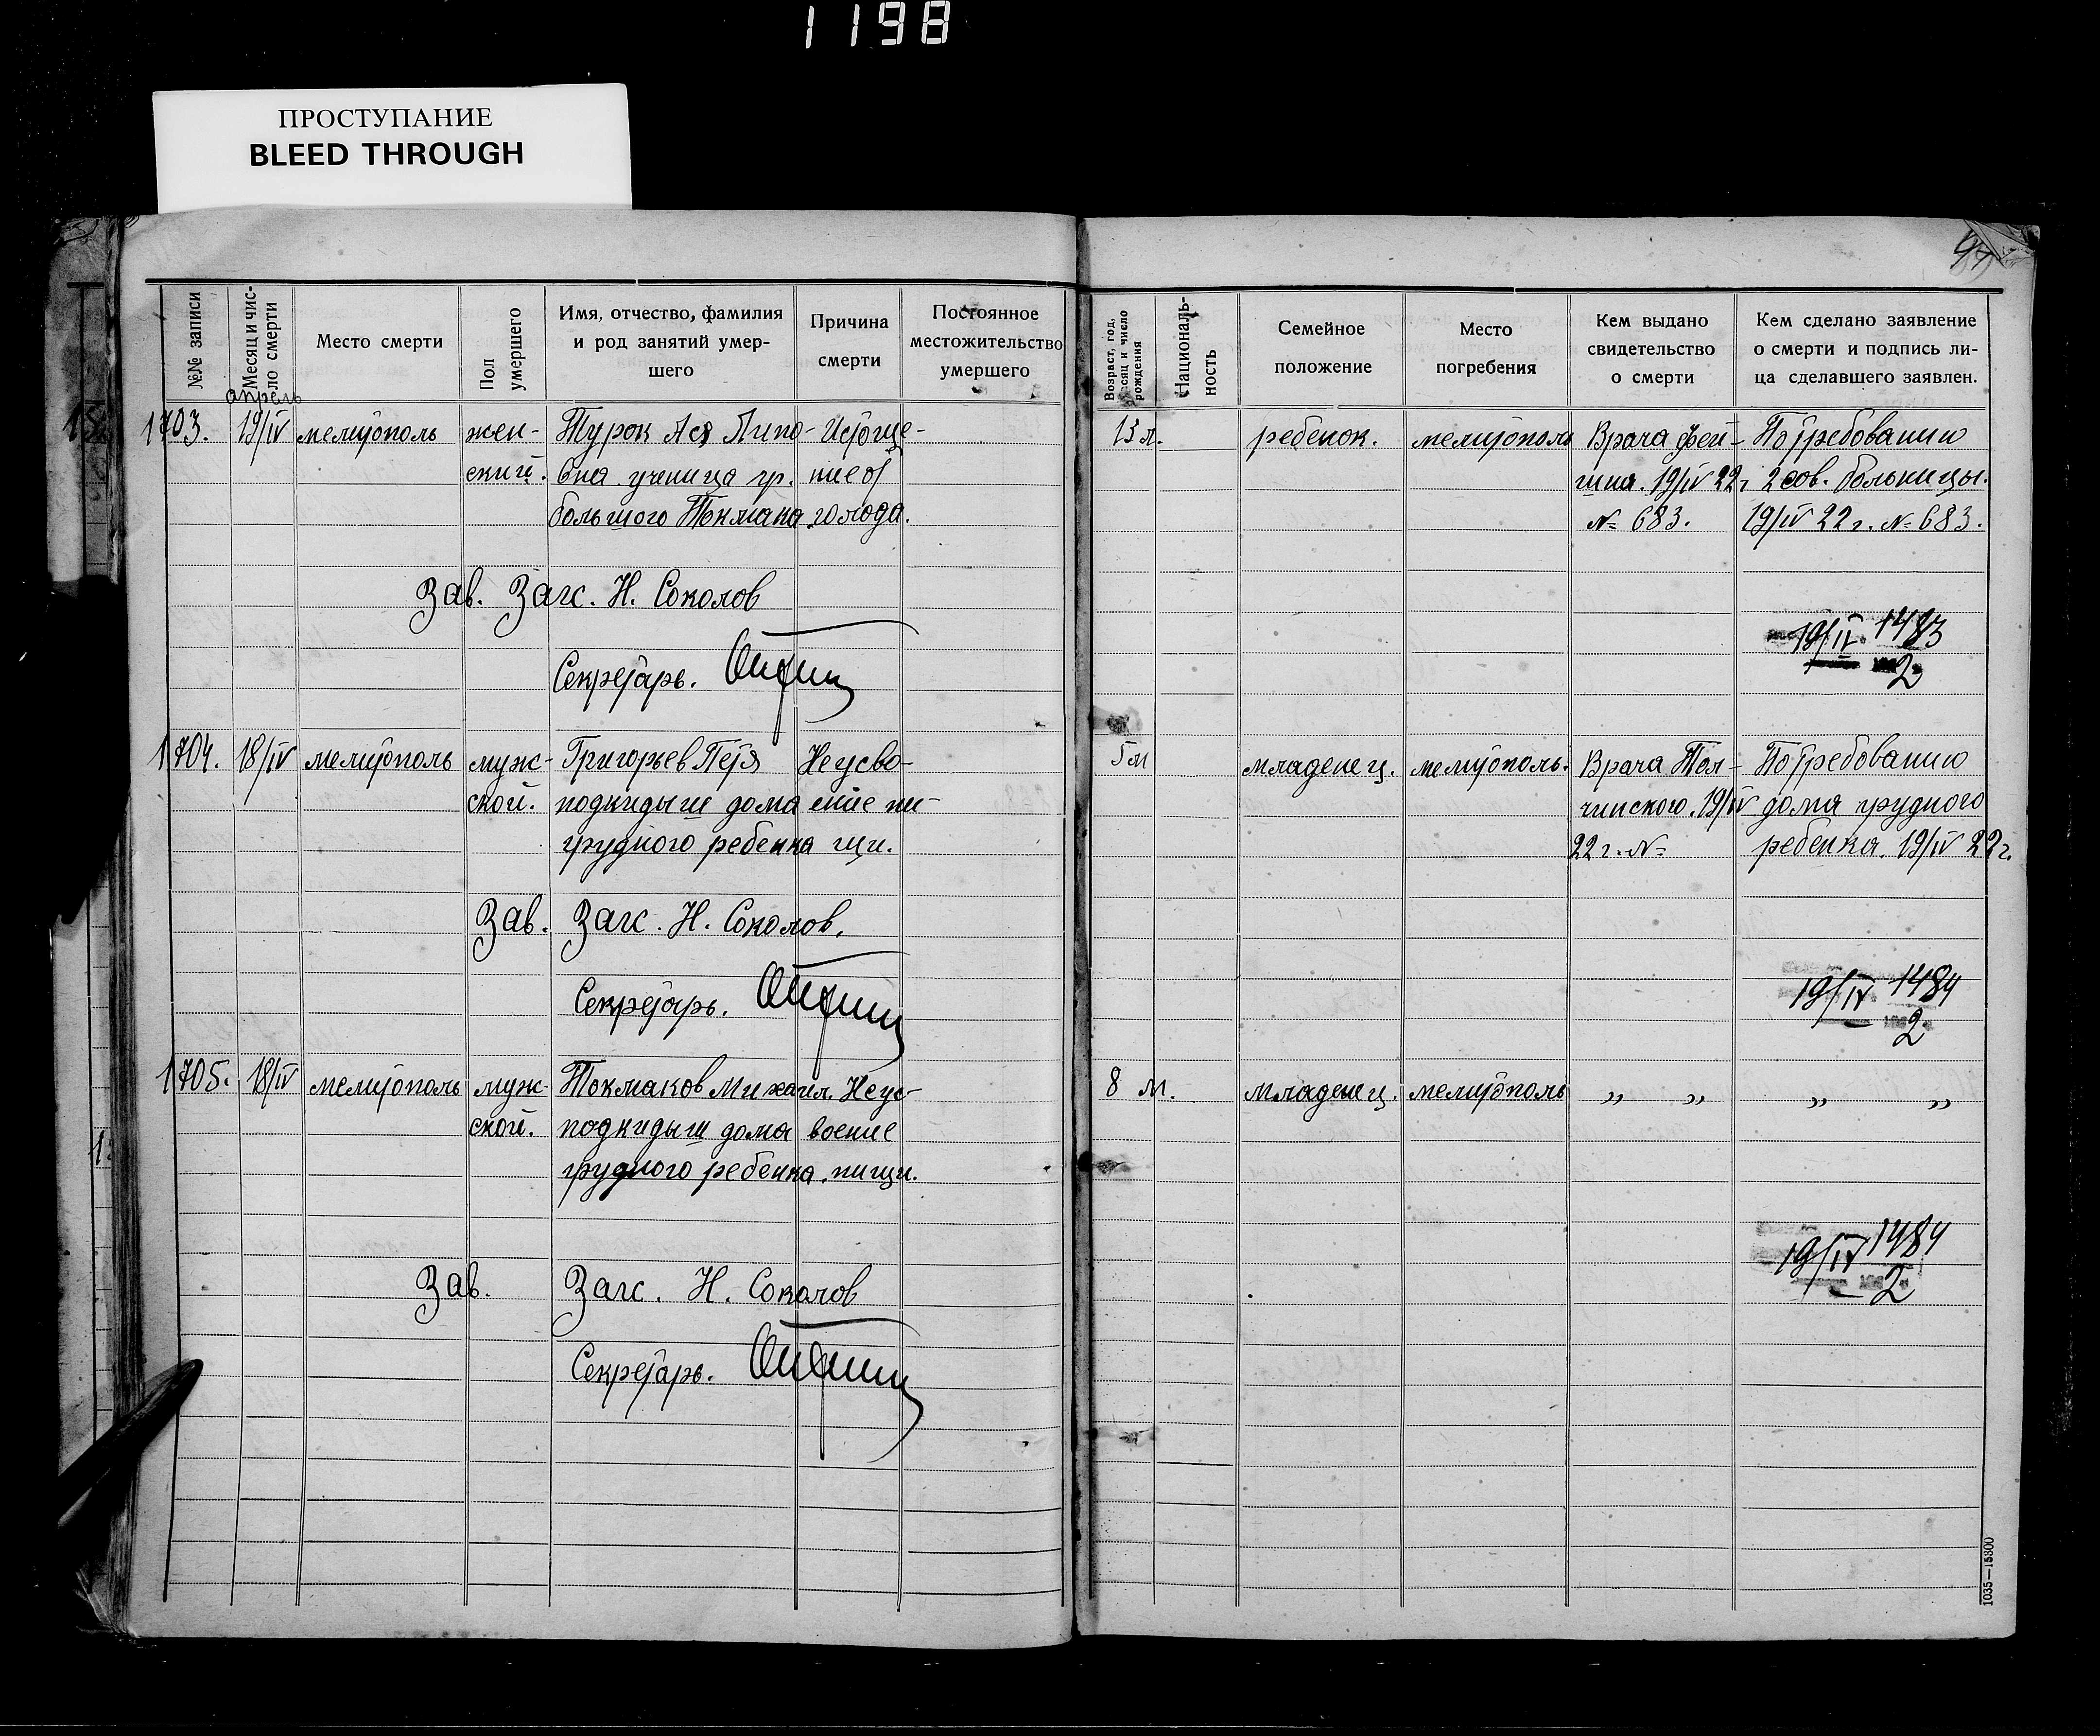 1198
ПРОСТУПАНИЕ
BLEED THROUGH
№№ записи
Месяц и чис-
ло смерти
Место смерти
Пол
умершего
Имя, отчество, фамилия
и род занятий умер-
шего
Причина
смерти
Постоянное
местожительство
умершего
Возраст, год,
месяц и число
рождения
Националь-
ность
Семейное
положение
Место
погребения
Кем выдано
свидетельство
о смерти
Кем сделано заявление
о смерти и подпись ли-
ца сделавшего заявлен.
апрель
1703. 19/IV мелитополь жен- Турок Ася Липо- Истоще- 13 л. ребенок. мелитополь Врача Фей- По требованию
ский. вна ученица гр. ние от гина. 19/IV 22 г 2 сов. больницы.
большого Токмака голода. № 683. 19/IV 22 г. № 683.
Зав. Загс. Н. Соколов
19/IV 1483
2
Секретарь.
1704. 18/IV мелитополь муж- Григорьев Петя Неусво- 5 м младенец. мелитополь. Врача Тол- По требованию
ской. подкидыш дома ение пи- чинского. 19/IV дома грудного
грудного ребенка щи. 22 г. № ребенка. 19/IV 22 г.
Зав. Загс. Н. Соколов.
19/IV 1484
2
Секретарь.
1705. 18/IV мелитополь муж- Токмаков Михаил. Неус- 8 м. младенец. мелитополь „ „ „ „
ской. подкидыш дома воение
грудного ребенка. пищи.
19/IV 1484
2
Зав. Загс. Н. Соколов
Секретарь.
1035—15300